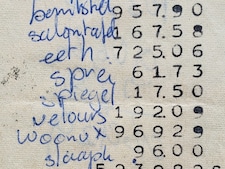 957.90
salontafel 167.58
eeth. 725.06
sprei 61.73
spiegel 17.50
velours 192.09
woonv x 9692
slaapk. 96.00